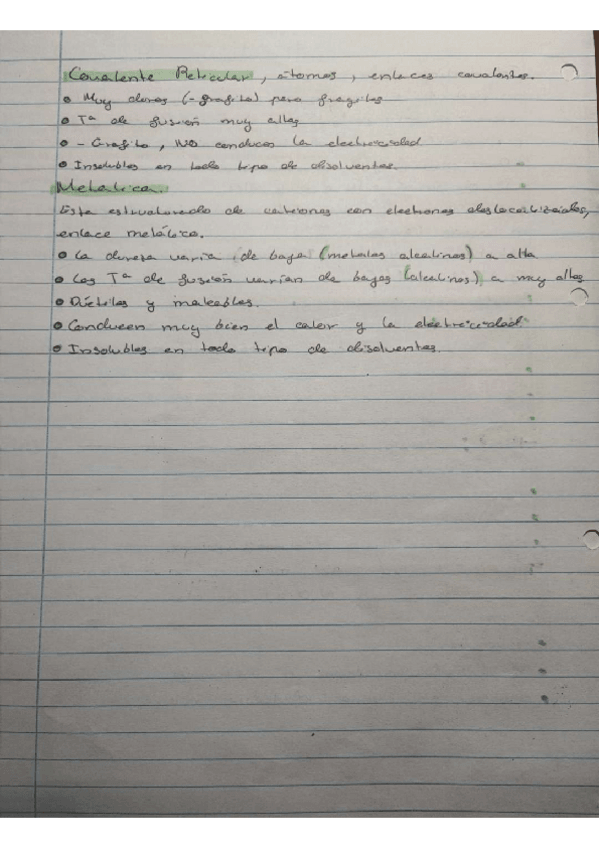 Covalente Reticular, átomos, enlaces covalentes.
• Muy duros (- grafito) pero fragiles
• Tª de fusión muy altas
• - Grafito, NO conducen la electricidad
• Insolubles en todo tipo de disolventes.
Metálica.
Esta estructurado de cationes con electrones deslocalizados,
enlace metálico.
• La dureza varia de baja (metales alcalinos) a alta
• Las Tª de fusión varían de bajas (alcalinos) a muy altas
• Dúctiles y maleables.
• Conducen muy bien el calor y la electricidad.
• Insolubles en todo tipo de disolventes.